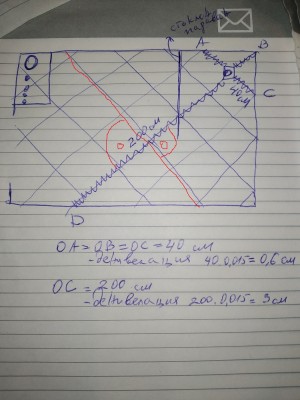 стъклен
параван
A
B
O
40 см
C
200 см
D
OA = OB = OC = 40 см
- денивелация 40.0,015 = 0,6 см
OC = 200 см
- денивелация 200.0,015 = 3 см